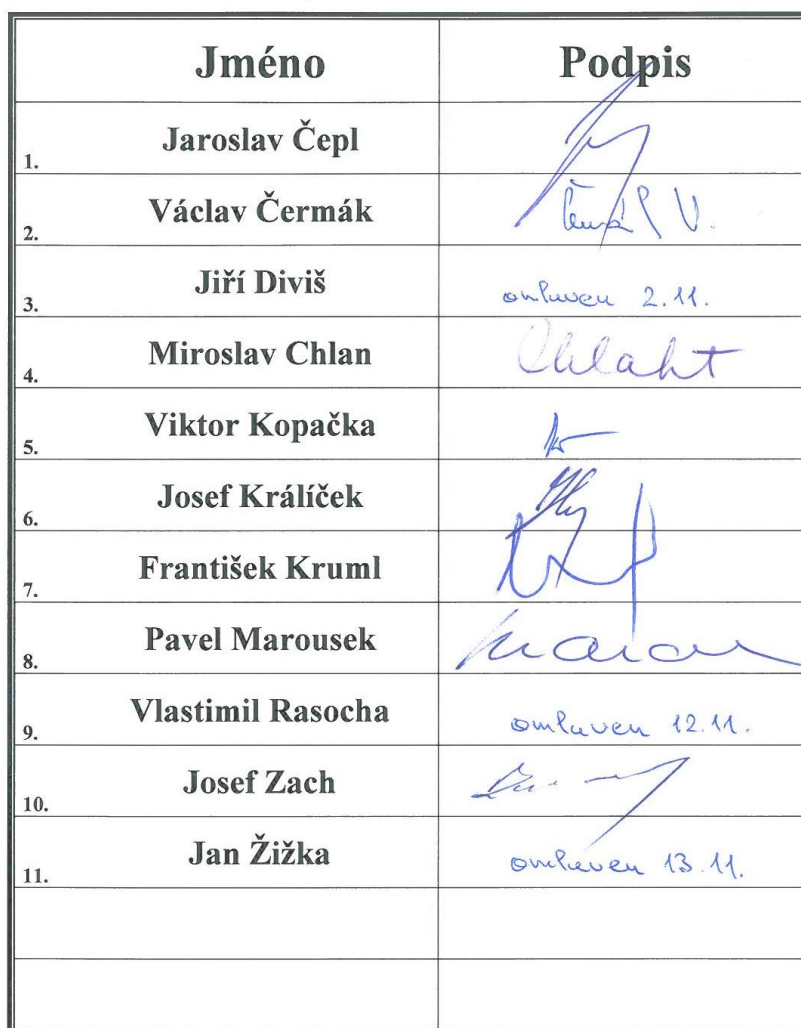 Jméno Podpis
1. Jaroslav Čepl
2. Václav Čermák V.
3. Jiří Diviš omluven 2.11.
4. Miroslav Chlan
5. Viktor Kopačka
6. Josef Králíček
7. František Kruml
8. Pavel Marousek
9. Vlastimil Rasocha omluven 12.11.
10. Josef Zach
11. Jan Žižka omluven 13.11.